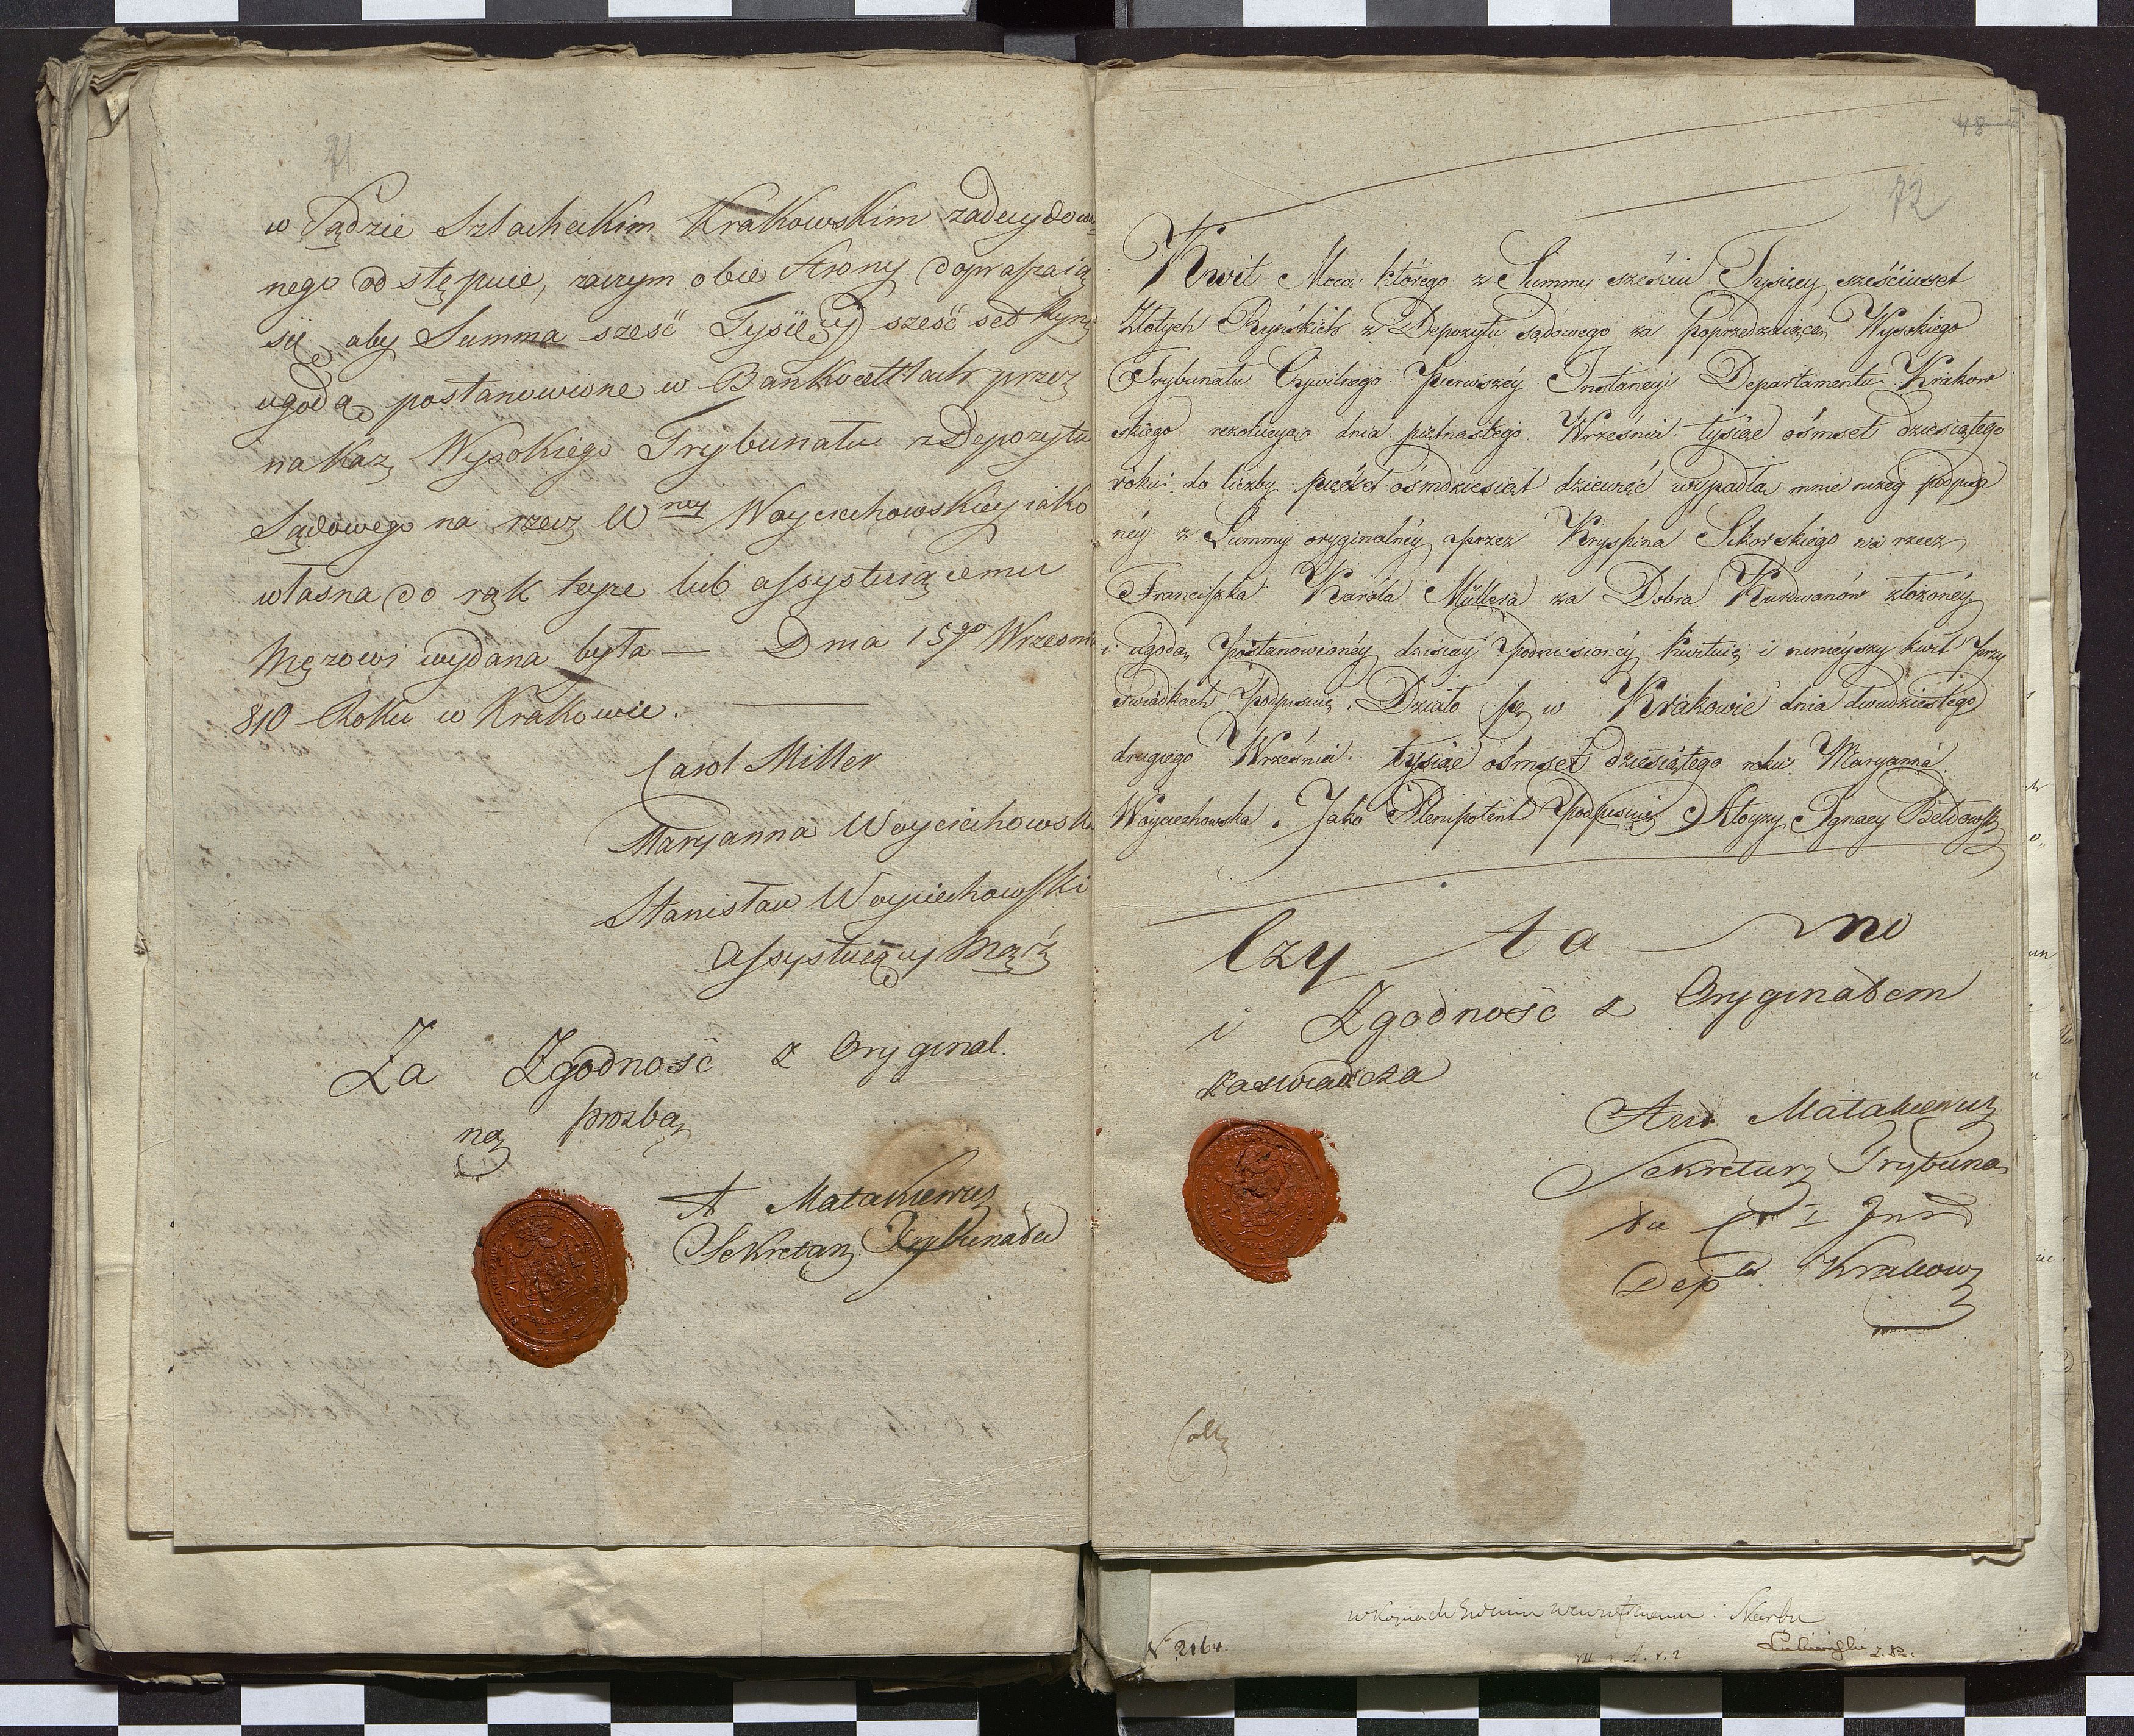 71
w Sądzie Szlacheckim Krakowskim zadecydowa
nego odstępuie, zaczym obie Strony dopraszaią
się aby Summa sześć Tysięcy sześć set Ryn
ugodą postanowione w Bankocetlach przez
nakaz Wysokiego Trybunału z Depozytu
Sądowego na rzecz Wney Woyciechowskiey iako
własna do rąk teyże lub assystuiącemu
Mężowi wydana była — Dnia 15go Wrzesnia
810 Roku w Krakowie.
Carol Miller
Maryanna Woyciechowska
Stanisław Woyciechowski
assystuiący Mąż
Za Zgodność z Orygınal.
ną prozbą
A Matakiewicz
Sekretarz Trybunału
48
72
Kwit Mocą którego z Summy sześciu Tysięcy sześciuset
Złotych Ryńskich z Depozytu sądowego za poprzedzaiącą Wysokiego
Trybunału Cywilnego Pierwszéy Instancyi Departamentu Krakow
skiego rezolucyą dnia piętnastego Września tysiąc ośmset dziesiątego
roku do liczby pięćset ośmdziesiąt dziewięć wypadłą mnie niżey podpisa
néy z Summy oryginalnéy przez Kryspina Sikorskiego na rzecz
Franciszka Karola Müllera za Dobra Kurdwanów złożonéy
i ugodą postanowionéy dzisiay podniesionéy kwituię i ninieyszy kwit przy
świadkach podpisuię. Działo się w Krakowie dnia dwudziestego
drugiego Września tysiąc ośmset dziesiątego roku Maryanna
Woyciechowska. Jako Plenipotent podpisuię Aloyzy Ignacy Bełdowski
Czytano
i Zgodność z Oryginałem
zaswiadcza
And. Matakiewicz
Sekretarz Trybuna
łu C. I Inst
Depu Krakow
Coll
N 2164.